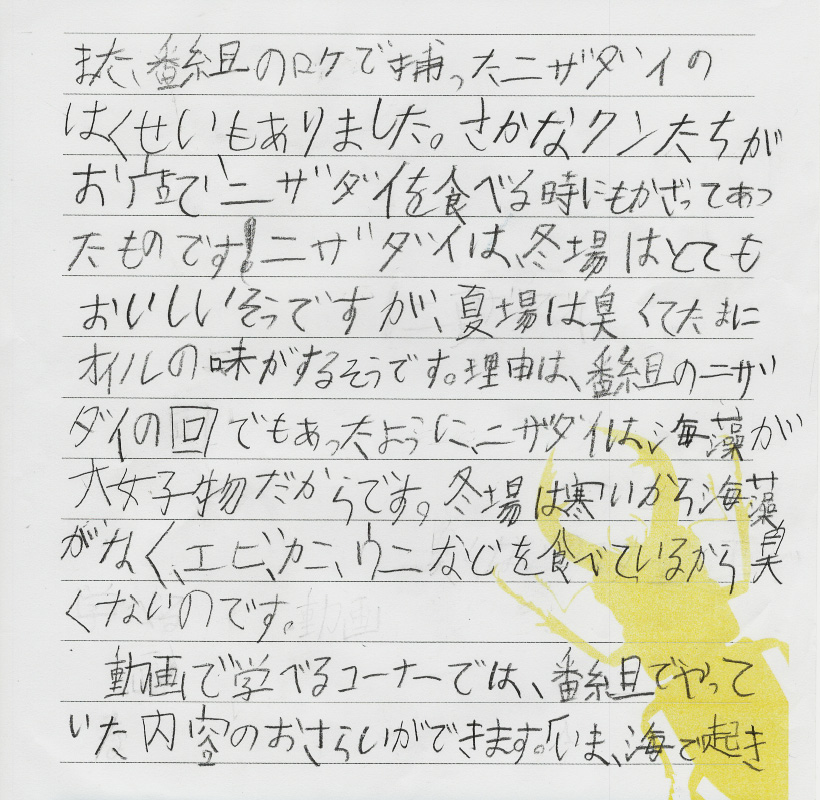 また、番組のロケで捕ったニザダイの
はくせいもありました。さかなクンたちが
お店でニザダイを食べる時にもかざってあっ
たものです!ニザダイは、冬場はとても
おいしいそうですが、夏場は臭くてたまに
オイルの味がするそうです。理由は、番組のニザ
ダイの回でもあったように、ニザダイは、海藻が
大好物だからです。冬場は寒いから海藻
がなく、エビ、カニ、ウニなどを食べているから臭
くないのです。
動画で学べるコーナーでは、番組でやって
いた内容のおさらいができます。「いま、海で起き